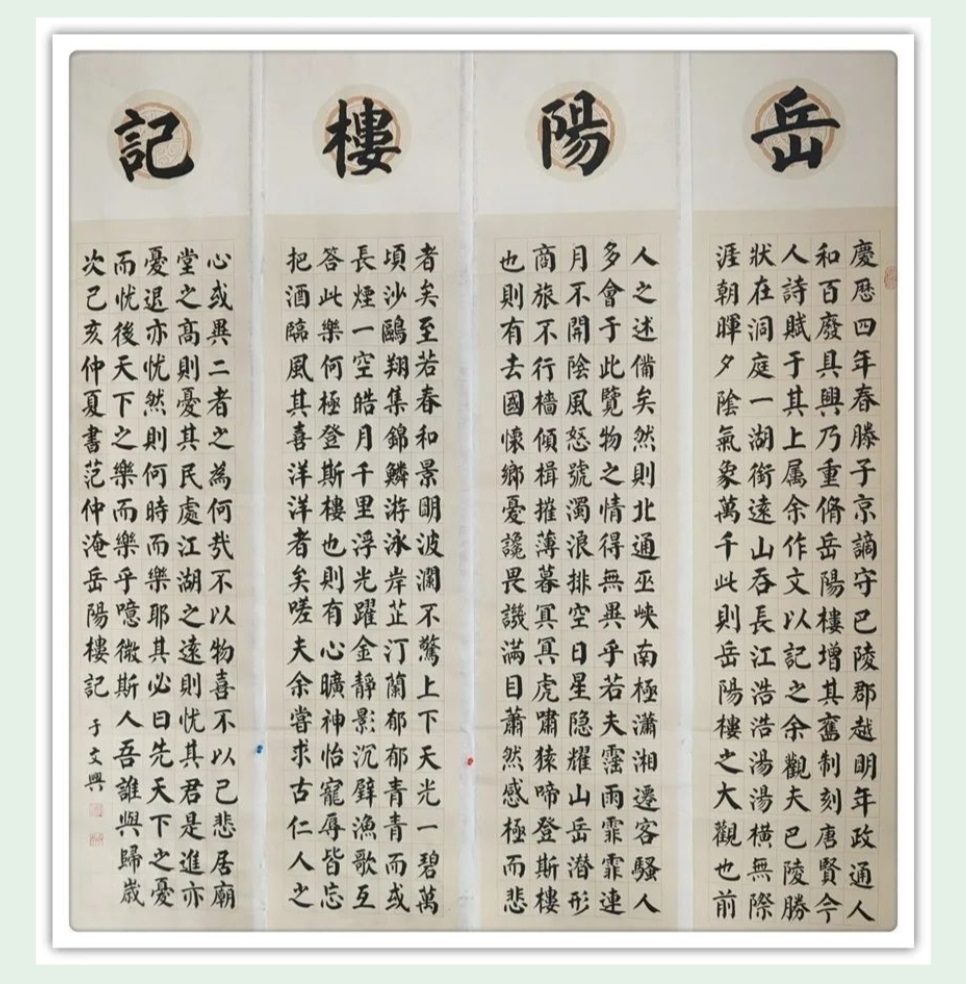 岳
陽
樓
記
慶曆四年春滕子京謫守巴陵郡越明年政通人
和百廢具興乃重脩岳陽樓增其舊制刻唐賢今
人詩賦于其上属余作文以記之余觀夫巴陵勝
狀在洞庭一湖銜遠山吞長江浩浩湯湯橫無際
涯朝暉夕陰氣象萬千此則岳陽樓之大觀也前
人之述備矣然則北通巫峽南極瀟湘遷客騷人
多會于此覽物之情得無異乎若夫霪雨霏霏連
月不開陰風怒號濁浪排空日星隐耀山岳潜形
商旅不行檣傾楫摧薄暮冥冥虎嘯猿啼登斯樓
也則有去國懷鄉憂讒畏譏滿目蕭然感極而悲
者矣至若春和景明波瀾不驚上下天光一碧萬
頃沙鷗翔集錦鱗游泳岸芷汀蘭郁郁青青而或
長煙一空皓月千里浮光躍金靜影沉璧漁歌互
答此樂何極登斯樓也則有心曠神怡寵辱皆忘
把酒臨風其喜洋洋者矣嗟夫余嘗求古仁人之
心或異二者之為何哉不以物喜不以己悲居廟
堂之高則憂其民處江湖之遠則忧其君是進亦
憂退亦忧然則何時而樂耶其必曰先天下之憂
而忧後天下之樂而樂乎噫微斯人吾誰與歸歲
次己亥仲夏書范仲淹岳陽樓記 于文興